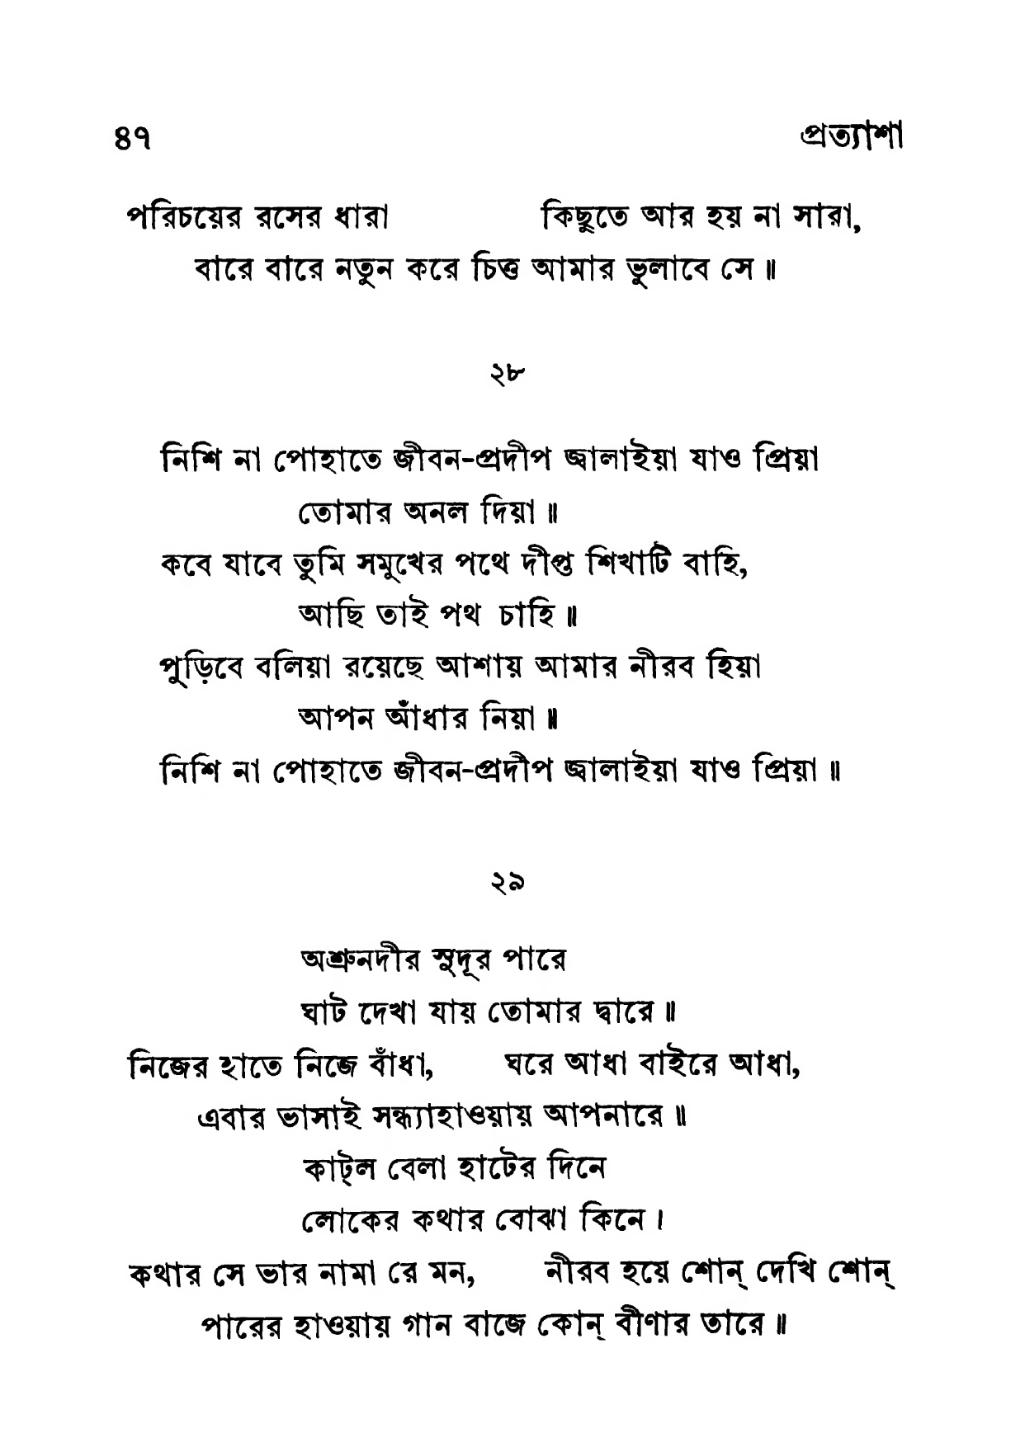 ৪৭ প্রত্যাশা
পরিচয়ের রসের ধারা কিছুতে আর হয় না সারা,
বারে বারে নতুন করে চিত্ত আমার ভুলাবে সে॥
২৮
নিশি না পোহাতে জীবন-প্রদীপ জ্বালাইয়া যাও প্রিয়া
তোমার অনল দিয়া॥
কবে যাবে তুমি সমুখের পথে দীপ্ত শিখাটি বাহি,
আছি তাই পথ চাহি॥
পুড়িবে বলিয়া রয়েছে আশায় আমার নীরব হিয়া
আপন আঁধার নিয়া॥
নিশি না পোহাতে জীবন-প্রদীপ জ্বালাইয়া যাও প্রিয়া॥
২৯
অশ্রুনদীর সুদূর পারে
ঘাট দেখা যায় তোমার দ্বারে॥
নিজের হাতে নিজে বাঁধা, ঘরে আধা বাইরে আধা,
এবার ভাসাই সন্ধ্যাহাওয়ায় আপনারে॥
কাট্‌ল বেলা হাটের দিনে
লোকের কথার বোঝা কিনে।
কথার সে ভার নামা রে মন, নীরব হয়ে শোন্ দেখি শোন্
পারের হাওয়ায় গান বাজে কোন্ বীণার তারে॥